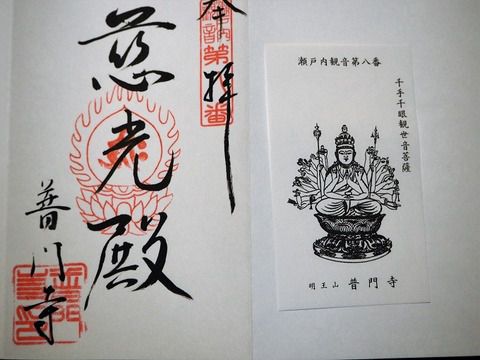 奉拝
慈光殿
普門寺
瀬戸内観音第八番
千手千眼観世音菩薩
明王山 普門寺